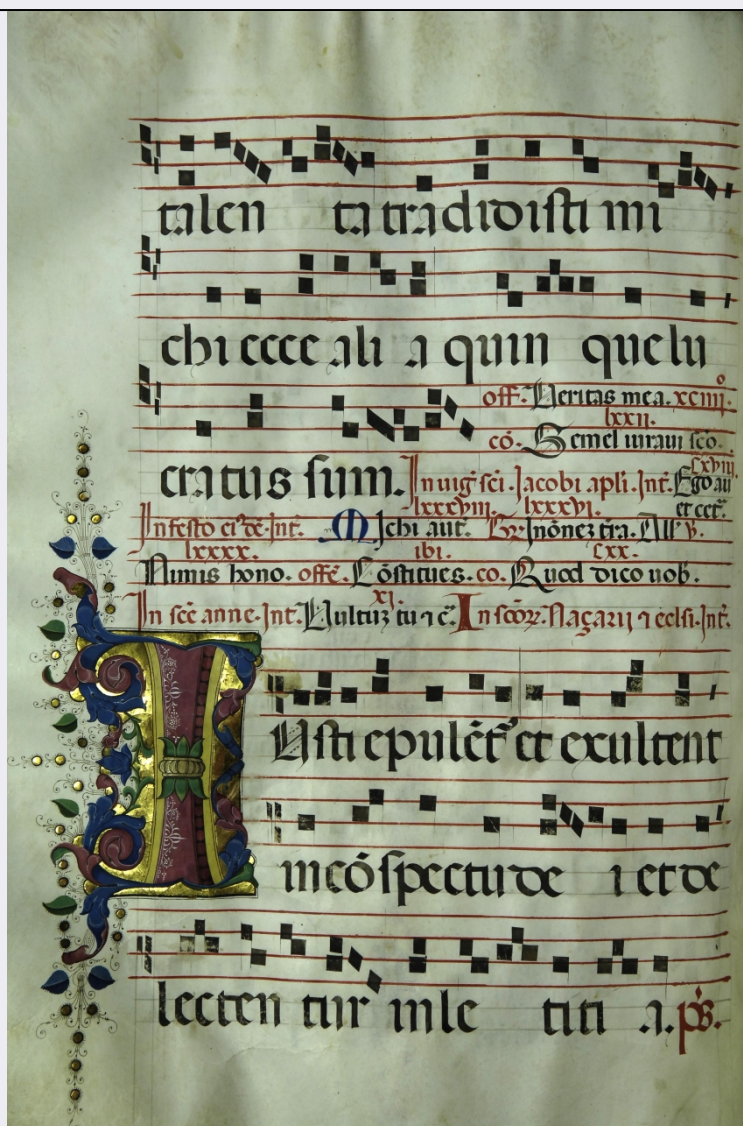 talen ta tradidisti mi
chi ecce ali a quin que lu
off. Veritas mea. xciiii.
lxxii.
cō. Semel iuraui sco.
cratus sum. In uig sci. Jacobi apli. Int. Ego au
cxviii.
et cet.
lxxxviii. lxxxvi.
In festo eidē. Int. Michi aut. Inōnez tra. All v.
lxxxx. ibi. cxx.
Nimis hono. offē. Cōstitues. co. Quod dico uob.
xi.
In scē anne. Int. Uultuz tu ⁊ c̄. In Naçarii ⁊ celsi. Int.
Iusti epulēt et exultent
in cōspectu de i et de
lecten tur in le titi a. ps.